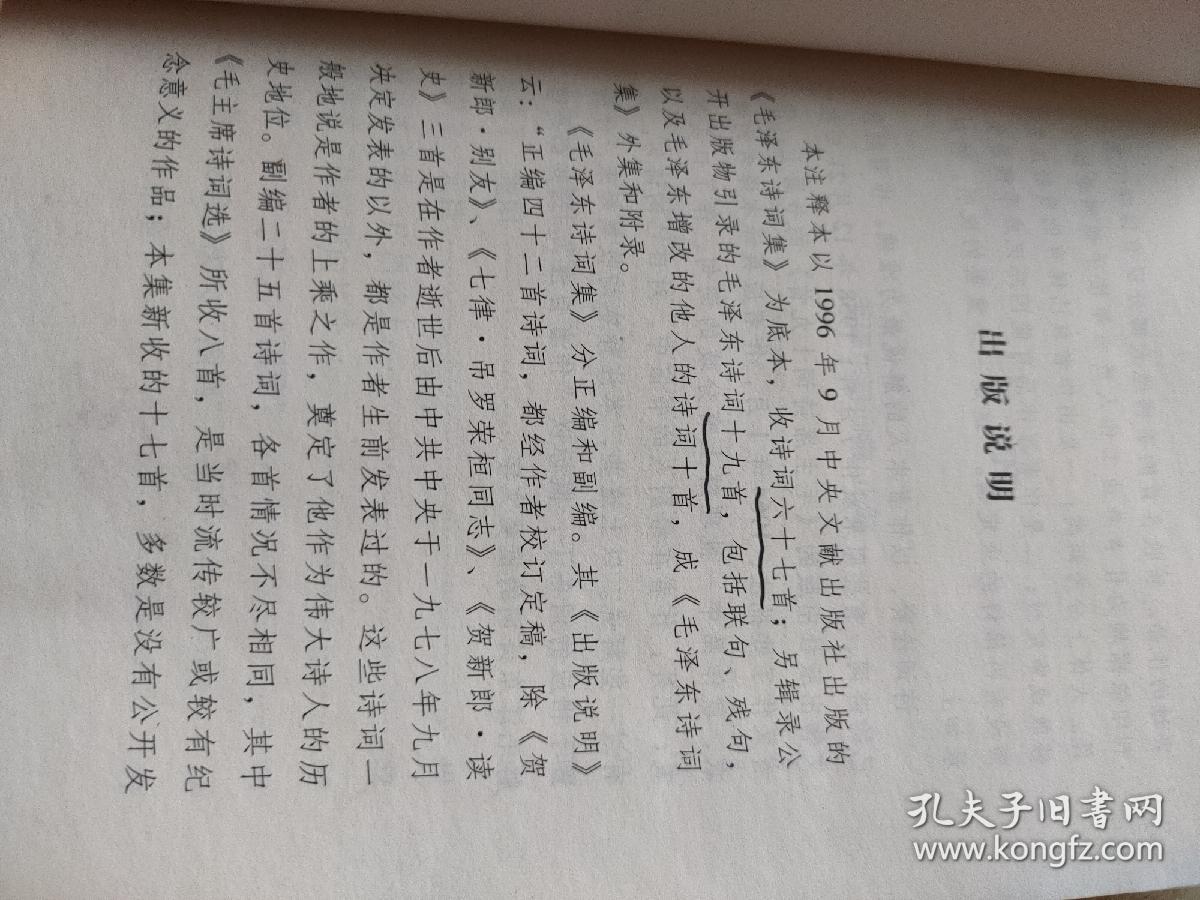 出版说明
本注释本以1996年9月中央文献出版社出版的
《毛泽东诗词集》为底本，收诗词六十七首；另辑录公
开出版物引录的毛泽东诗词十九首，包括联句、残句，
以及毛泽东增改的他人的诗词十首，成《毛泽东诗词
集》外集和附录。
《毛泽东诗词集》分正编和副编。其《出版说明》
云：“正编四十二首诗词，都经作者校订定稿，除《贺
新郎·别友》、《七律·吊罗荣桓同志》、《贺新郎·读
史》三首是在作者逝世后由中共中央于一九七八年九月
决定发表的以外，都是作者生前发表过的。这些诗词一
般地说是作者的上乘之作，奠定了他作为伟大诗人的历
史地位。副编二十五首诗词，各首情况不尽相同，其中
《毛主席诗词选》所收八首，是当时流传较广或较有纪
念意义的作品；本集新收的十七首，多数是没有公开发
孔夫子旧书网
www.kongfz.com